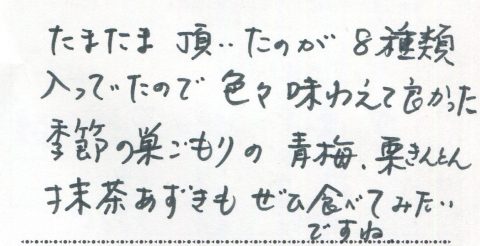 たまたま 頂いたのが 8種類
入っていたので 色々味わえて良かった
季節の巣ごもりの 青梅、栗きんとん
抹茶あずきも ぜひ食べてみたい
ですね